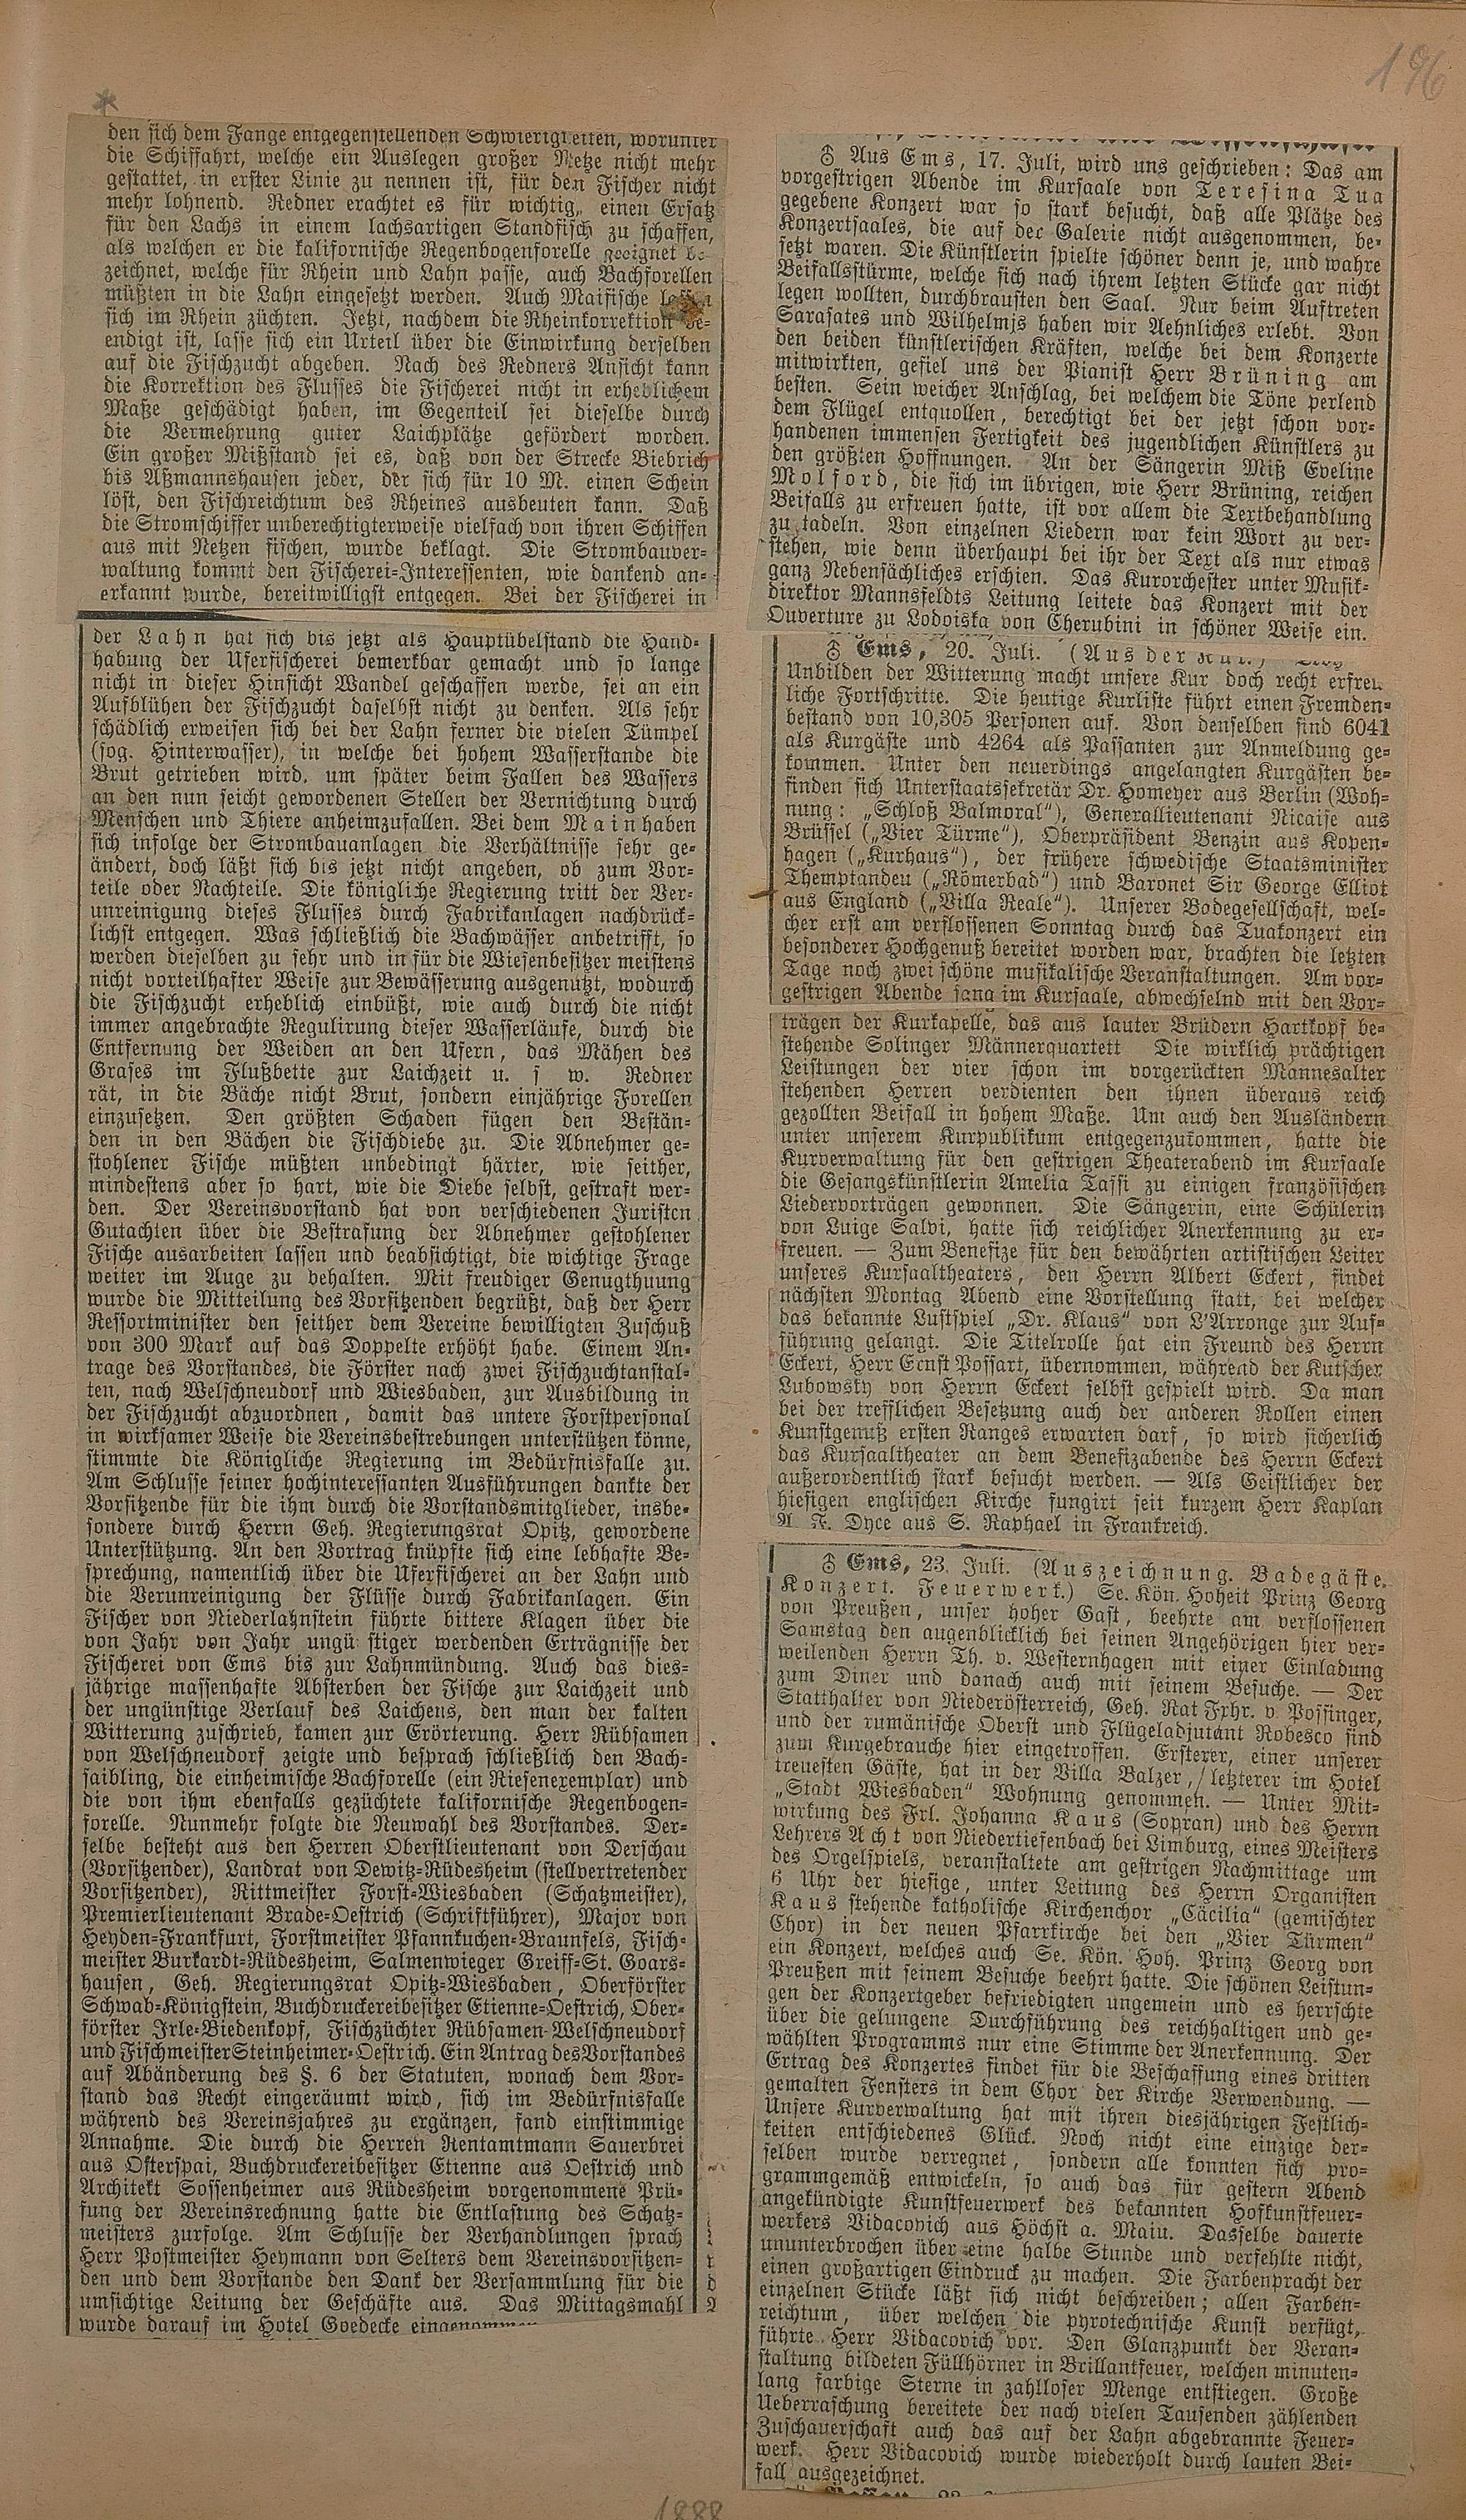 196
den sich dem Fange entgegenstellenden Schwierigkeiten, worunter
die Schiffahrt, welche ein Auslegen großer Netze nicht mehr
gestattet, in erster Linie zu nennen ist, für den Fischer nicht
mehr lohnend. Redner erachtet es für wichtig, einen Ersatz
für den Lachs in einem lachsartigen Standfisch zu schaffen,
als welchen er die kalifornische Regenbogenforelle geeignet be-
zeichnet, welche für Rhein und Lahn passe, auch Bachforellen
müßten in die Lahn eingesetzt werden. Auch Maifische
sich im Rhein züchten. Jetzt, nachdem die Rheinkorrektion be-
endigt ist, lasse sich ein Urteil über die Einwirkung derselben
auf die Fischzucht abgeben. Nach des Redners Ansicht kann
die Korrektion des Flusses die Fischerei nicht in erheblichem
Maße geschädigt haben, im Gegenteil sei dieselbe durch
die Vermehrung guter Laichplätze gefördert worden.
Ein großer Mißstand sei es, daß von der Strecke Biebrich
bis Aßmannshausen jeder, der sich für 10 M. einen Schein
löst, den Fischreichtum des Rheines ausbeuten kann. Daß
die Stromschiffer unberechtigterweise vielfach von ihren Schiffen
aus mit Netzen fischen, wurde beklagt. Die Strombauver-
waltung kommt den Fischerei-Interessenten, wie dankend an-
erkannt wurde, bereitwilligst entgegen. Bei der Fischerei in
der Lahn hat sich bis jetzt als Hauptübelstand die Hand-
habung der Uferfischerei bemerkbar gemacht und so lange
nicht in dieser Hinsicht Wandel geschaffen werde, sei an ein
Aufblühen der Fischzucht daselbst nicht zu denken. Als sehr
schädlich erweisen sich bei der Lahn ferner die vielen Tümpel
(sog. Hinterwasser), in welche bei hohem Wasserstande die
Brut getrieben wird, um später beim Fallen des Wassers
an den nun seicht gewordenen Stellen der Vernichtung durch
Menschen und Thiere anheimzufallen. Bei dem Main haben
sich infolge der Strombauanlagen die Verhältnisse sehr ge-
ändert, doch läßt sich bis jetzt nicht angeben, ob zum Vor-
teile oder Nachteile. Die königliche Regierung tritt der Ver-
unreinigung dieses Flusses durch Fabrikanlagen nachdrück-
lichst entgegen. Was schließlich die Bachwässer anbetrifft, so
werden dieselben zu sehr und in für die Wiesenbesitzer meistens
nicht vorteilhafter Weise zur Bewässerung ausgenützt, wodurch
die Fischzucht erheblich einbüßt, wie auch durch die nicht
immer angebrachte Regulirung dieser Wasserläufe, durch die
Entfernung der Weiden an den Ufern, das Mähen des
Grases im Flußbette zur Laichzeit u. s w. Redner
rät, in die Bäche nicht Brut, sondern einjährige Forellen
einzusetzen. Den größten Schaden fügen den Bestän-
den in den Bächen die Fischdiebe zu. Die Abnehmer ge-
stohlener Fische müßten unbedingt härter, wie seither,
mindestens aber so hart, wie die Diebe selbst, gestraft wer-
den. Der Vereinsvorstand hat von verschiedenen Juristen
Gutachten über die Bestrafung der Abnehmer gestohlener
Fische ausarbeiten lassen und beabsichtigt, die wichtige Frage
weiter im Auge zu behalten. Mit freudiger Genugthuung
wurde die Mitteilung des Vorsitzenden begrüßt, daß der Herr
Ressortminister den seither dem Vereine bewilligten Zuschuß
von 300 Mark auf das Doppelte erhöht habe. Einem An-
trage des Vorstandes, die Förster nach zwei Fischzuchtanstal-
ten, nach Welschneudorf und Wiesbaden, zur Ausbildung in
der Fischzucht abzuordnen, damit das untere Forstpersonal
in wirksamer Weise die Vereinsbestrebungen unterstützen könne,
stimmte die Königliche Regierung im Bedürfnisfalle zu.
Am Schlusse seiner hochinteressanten Ausführungen dankte der
Vorsitzende für die ihm durch die Vorstandsmitglieder, insbe-
sondere durch Herrn Geh. Regierungsrat Opitz, gewordene
Unterstützung. An den Vortrag knüpfte sich eine lebhafte Be-
sprechung, namentlich über die Uferfischerei an der Lahn und
die Verunreinigung der Flüsse durch Fabrikanlagen. Ein
Fischer von Niederlahnstein führte bittere Klagen über die
von Jahr von Jahr ungü stiger werdenden Erträgnisse der
Fischerei von Ems bis zur Lahnmündung. Auch das dies-
jährige massenhafte Absterben der Fische zur Laichzeit und
der ungünstige Verlauf des Laichens, den man der kalten
Witterung zuschrieb, kamen zur Erörterung. Herr Rübsamen
von Welschneudorf zeigte und besprach schließlich den Bach-
saibling, die einheimische Bachforelle (ein Riesenexemplar) und
die von ihm ebenfalls gezüchtete kalifornische Regenbogen-
forelle. Nunmehr folgte die Neuwahl des Vorstandes. Der-
selbe besteht aus den Herren Oberstlieutenant von Derschau
(Vorsitzender), Landrat von Dewitz-Rüdesheim (stellvertretender
Vorsitzender), Rittmeister Forst-Wiesbaden (Schatzmeister),
Premierlieutenant Brade-Oestrich (Schriftführer), Major von
Heyden-Frankfurt, Forstmeister Pfannkuchen-Braunfels, Fisch-
meister Burkardt-Rüdesheim, Salmenwieger Greiff-St. Goars-
hausen, Geh. Regierungsrat Opitz-Wiesbaden, Oberförster
Schwab-Königstein, Buchdruckereibesitzer Etienne-Oestrich, Ober-
förster Irle-Biedenkopf, Fischzüchter Rübsamen-Welschneudorf
und Fischmeister Steinheimer-Oestrich. Ein Antrag des Vorstandes
auf Abänderung des §. 6 der Statuten, wonach dem Vor-
stand das Recht eingeräumt wird, sich im Bedürfnisfalle
während des Vereinsjahres zu ergänzen, fand einstimmige
Annahme. Die durch die Herren Rentamtmann Sauerbrei
aus Osterspai, Buchdruckereibesitzer Etienne aus Oestrich und
Architekt Sossenheimer aus Rüdesheim vorgenommene Prü-
fung der Vereinsrechnung hatte die Entlastung des Schatz-
meisters zurfolge. Am Schlusse der Verhandlungen sprach
Herr Postmeister Heymann von Selters dem Vereinsvorsitzen-
den und dem Vorstande den Dank der Versammlung für die
umsichtige Leitung der Geschäfte aus. Das Mittagsmahl
wurde darauf im Hotel Goedecke eingenommen
♁ Aus Ems, 17. Juli, wird uns geschrieben: Das am
vorgestrigen Abende im Kursaale von Teresina Tua
gegebene Konzert war so stark besucht, daß alle Plätze des
Konzertsaales, die auf der Galerie nicht ausgenommen, be-
setzt waren. Die Künstlerin spielte schöner denn je, und wahre
Beifallsstürme, welche sich nach ihrem letzten Stücke gar nicht
legen wollten, durchbrausten den Saal. Nur beim Auftreten
Sarasates und Wilhelmjs haben wir Aehnliches erlebt. Von
den beiden künstlerischen Kräften, welche bei dem Konzerte
mitwirkten, gefiel uns der Pianist Herr Brüning am
besten. Sein weicher Anschlag, bei welchem die Töne perlend
dem Flügel entquollen, berechtigt bei der jetzt schon vor-
handenen immensen Fertigkeit des jugendlichen Künstlers zu
den größten Hoffnungen. An der Sängerin Miß Eveline
Molford, die sich im übrigen, wie Herr Brüning, reichen
Beifalls zu erfreuen hatte, ist vor allem die Textbehandlung
zu tadeln. Von einzelnen Liedern war kein Wort zu ver-
stehen, wie denn überhaupt bei ihr der Text als nur etwas
ganz Nebensächliches erschien. Das Kurorchester unter Musik-
direktor Mannsfeldts Leitung leitete das Konzert mit der
Ouverture zu Lodoiska von Cherubini in schöner Weise ein.
♁ Ems, 20. Juli. (Aus der Kur.)
Unbilden der Witterung macht unsere Kur doch recht erfreu
liche Fortschritte. Die heutige Kurliste führt einen Fremden-
bestand von 10,305 Personen auf. Von denselben sind 6041
als Kurgäste und 4264 als Passanten zur Anmeldung ge-
kommen. Unter den neuerdings angelangten Kurgästen be-
finden sich Unterstaatssekretär Dr. Homeyer aus Berlin (Woh-
nung: „Schloß Balmoral“), Generallieutenant Nicaise aus
Brüssel („Vier Türme“), Oberpräsident Benzin aus Kopen-
hagen („Kurhaus“), der frühere schwedische Staatsminister
Themptandeu („Römerbad“) und Baronet Sir George Elliot
aus England („Villa Reale“). Unserer Badegesellschaft, wel-
cher erst am verflossenen Sonntag durch das Tuakonzert ein
besonderer Hochgenuß bereitet worden war, brachten die letzten
Tage noch zwei schöne musikalische Veranstaltungen. Am vor-
gestrigen Abende sang im Kursaale, abwechselnd mit den Vor-
trägen der Kurkapelle, das aus lauter Brüdern Hartkopf be-
stehende Solinger Männerquartett Die wirklich prächtigen
Leistungen der vier schon im vorgerückten Mannesalter
stehenden Herren verdienten den ihnen überaus reich
gezollten Beifall in hohem Maße. Um auch den Ausländern
unter unserem Kurpublikum entgegenzukommen, hatte die
Kurverwaltung für den gestrigen Theaterabend im Kursaale
die Gesangskünstlerin Amelia Tassi zu einigen französischen
Liedervorträgen gewonnen. Die Sängerin, eine Schülerin
von Luige Salvi, hatte sich reichlicher Anerkennung zu er-
freuen. — Zum Benefize für den bewährten artistischen Leiter
unseres Kursaaltheaters, den Herrn Albert Eckert, findet
nächsten Montag Abend eine Vorstellung statt, bei welcher
das bekannte Lustspiel „Dr. Klaus“ von L'Arronge zur Auf-
führung gelangt. Die Titelrolle hat ein Freund des Herrn
Eckert, Herr Ernst Possart, übernommen, während der Kutscher
Lubowsky von Herrn Eckert selbst gespielt wird. Da man
bei der trefflichen Besetzung auch der anderen Rollen einen
Kunstgenuß ersten Ranges erwarten darf, so wird sicherlich
das Kursaaltheater an dem Benefizabende des Herrn Eckert
außerordentlich stark besucht werden. — Als Geistlicher der
hiesigen englischen Kirche fungirt seit kurzem Herr Kaplan
A. F. Dyce aus S. Raphael in Frankreich.
♁ Ems, 23. Juli. (Auszeichnung. Badegäste.
Konzert. Feuerwerk.) Se. Kön. Hoheit Prinz Georg
von Preußen, unser hoher Gast, beehrte am verflossenen
Samstag den augenblicklich bei seinen Angehörigen hier ver-
weilenden Herrn Th. v. Westernhagen mit einer Einladung
zum Diner und danach auch mit seinem Besuche. — Der
Statthalter von Niederösterreich, Geh. Rat Frhr. v. Possinger,
und der rumänische Oberst und Flügeladjutant Robesco sind
zum Kurgebrauche hier eingetroffen. Ersterer, einer unserer
treuesten Gäste, hat in der Villa Balzer, letzterer im Hotel
„Stadt Wiesbaden“ Wohnung genommen. — Unter Mit-
wirkung des Frl. Johanna Kaus (Sopran) und des Herrn
Lehrers Acht von Niedertiefenbach bei Limburg, eines Meisters
des Orgelspiels, veranstaltete am gestrigen Nachmittage um
6 Uhr der hiesige, unter Leitung des Herrn Organisten
Kaus stehende katholische Kirchenchor „Cäcilia“ (gemischter
Chor) in der neuen Pfarrkirche bei den „Vier Türmen“
ein Konzert, welches auch Se. Kön. Hoh. Prinz Georg von
Preußen mit seinem Besuche beehrt hatte. Die schönen Leistun-
gen der Konzertgeber befriedigten ungemein und es herrschte
über die gelungene Durchführung des reichhaltigen und ge-
wählten Programms nur eine Stimme der Anerkennung. Der
Ertrag des Konzertes findet für die Beschaffung eines dritten
gemalten Fensters in dem Chor der Kirche Verwendung. —
Unsere Kurverwaltung hat mit ihren diesjährigen Festlich-
keiten entschiedenes Glück. Noch nicht eine einzige der-
selben wurde verregnet, sondern alle konnten sich pro-
grammgemäß entwickeln, so auch das für gestern Abend
angekündigte Kunstfeuerwerk des bekannten Hofkunstfeuer-
werkers Vidacovich aus Höchst a. Main. Dasselbe dauerte
ununterbrochen über eine halbe Stunde und verfehlte nicht,
einen großartigen Eindruck zu machen. Die Farbenpracht der
einzelnen Stücke läßt sich nicht beschreiben; allen Farben-
reichtum, über welchen die pyrotechnische Kunst verfügt,
führte Herr Vidacovich vor. Den Glanzpunkt der Veran-
staltung bildeten Füllhörner in Brillantfeuer, welchen minuten-
lang farbige Sterne in zahlloser Menge entstiegen. Große
Ueberraschung bereitete der nach vielen Tausenden zählenden
Zuschauerschaft auch das auf der Lahn abgebrannte Feuer-
werk. Herr Vidacovich wurde wiederholt durch lauten Bei-
fall ausgezeichnet.
1888